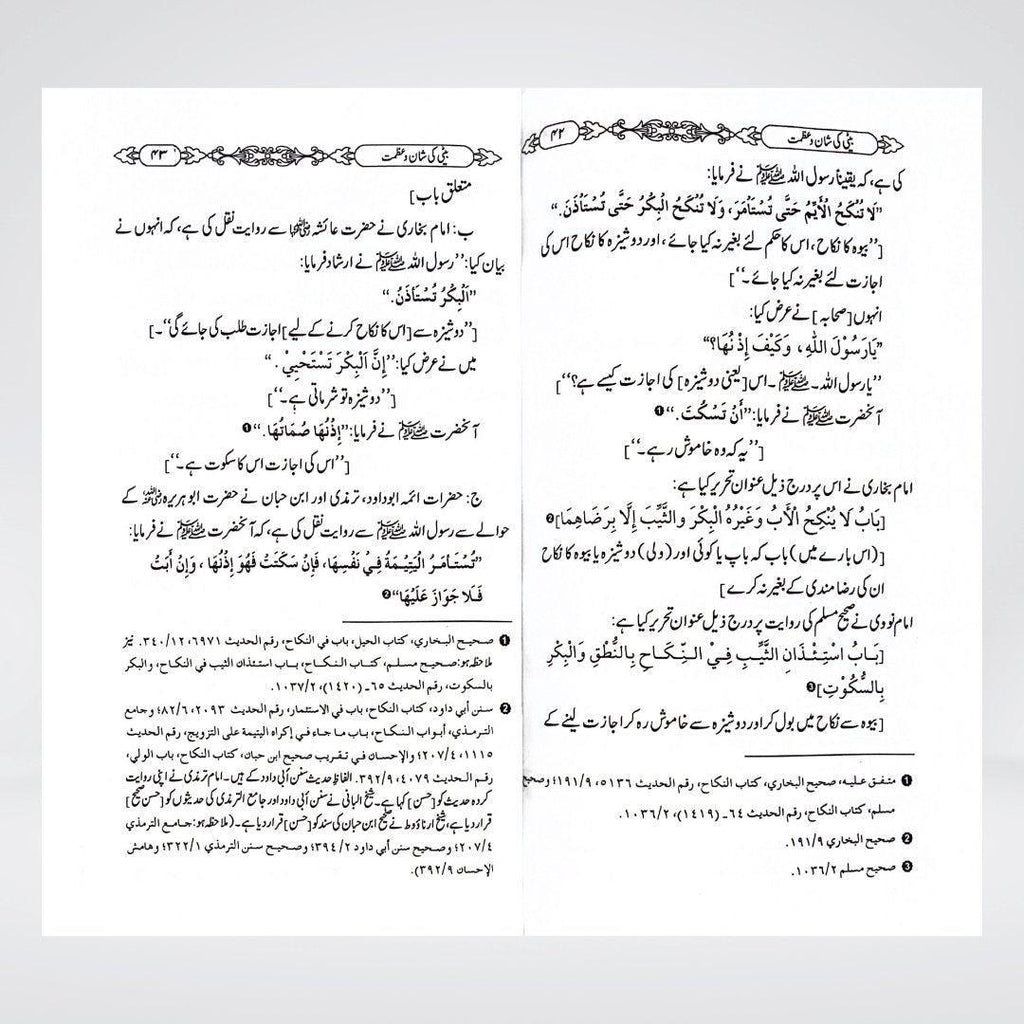 بیٹی کی شان و عظمت
۴۲
کی ہے، کہ یقیناً رسول اللہ ﷺ نے فرمایا:
”لَا تُنْكَحُ الْأَيِّمُ حَتَّى تُسْتَأْمَرَ، وَلَا تُنْكَحُ الْبِكْرُ حَتَّى تُسْتَأْذَنَ.“
[’’بیوہ کا نکاح، اس کا حکم لئے بغیر نہ کیا جائے، اور دوشیزہ کا نکاح اس کی
اجازت لئے بغیر نہ کیا جائے۔‘‘]
انہوں [صحابہ] نے عرض کیا:
”يَا رَسُوْلَ اللهِ، وَكَيْفَ إِذْنُهَا؟“
’’یا رسول اللہ۔ﷺ۔ اس [یعنی دوشیزہ] کی اجازت کیسے ہے؟‘‘]
آنحضرت ﷺ نے فرمایا: ”أَنْ تَسْكُتَ.“ ❶
[’’یہ کہ وہ خاموش رہے۔‘‘]
امام بخاری نے اس پر درج ذیل عنوان تحریر کیا ہے:
[بَابُ لَا يُنْكِحُ الْأَبُ وَغَيْرُهُ الْبِكْرَ وَالثَّيِّبَ إِلَّا بِرَضَاهِمَا] ❷
[(اس بارے میں) باب کہ باپ یا کوئی اور (ولی) دوشیزہ یا بیوہ کا نکاح
ان کی رضا مندی کے بغیر نہ کرے]
امام نووی نے صحیح مسلم کی روایت پر درج ذیل عنوان تحریر کیا ہے:
[بَابُ اسْتِئْذَانِ الثَّيِّبِ فِيْ النِّكَاحِ بِالنُّطْقِ وَالْبِكْرِ
بِالسُّكُوْتِ] ❸
[بیوہ سے نکاح میں بول کر اور دوشیزہ سے خاموش رہ کر اجازت لینے کے
❶ متفق علیہ، صحیح البخاري، کتاب النکاح، رقم الحدیث ۵۱۳۶، ۱۹۱/۹؛ وصحیح
مسلم، کتاب النکاح، رقم الحدیث ۶۴۔ (۱۴۱۹)، ۱۰۳۶/۲.
❷ صحیح البخاري ۱۹۱/۹.
❸ صحیح مسلم ۱۰۳۶/۲.
بیٹی کی شان و عظمت
۴۳
متعلق باب]
ب: امام بخاری نے حضرت عائشہ رضی اللہ عنہا سے روایت نقل کی ہے، کہ انہوں نے
بیان کیا: ’’رسول اللہ ﷺ نے ارشاد فرمایا:
”اَلْبِكْرُ تُسْتَأْذَنُ.“
[’’دوشیزہ سے [اس کا نکاح کرنے کے لیے] اجازت طلب کی جائے گی‘‘۔]
میں نے عرض کیا: ’’إِنَّ الْبِكْرَ تَسْتَحْيِيْ.“
[’’دوشیزہ تو شرماتی ہے۔‘‘]
آنحضرت ﷺ نے فرمایا: ”إِذْنُهَا صُمَاتُهَا.“ ❶
[’’اس کی اجازت اس کا سکوت ہے۔‘‘]
ج: حضرات ائمہ ابو داود، ترمذی اور ابن حبان نے حضرت ابو ہریرہ رضی اللہ عنہ کے
حوالے سے رسول اللہ ﷺ سے روایت نقل کی ہے، کہ آنحضرت ﷺ نے فرمایا:
”تُسْتَأْمَرُ الْيَتِيْمَةُ فِيْ نَفْسِهَا، فَإِنْ سَكَتَتْ فَهُوَ إِذْنُهَا، وَإِنْ أَبَتْ
فَلَا جَوَازَ عَلَيْهَا“ ❷
❶ صحیح البخاري، کتاب الحیل، باب في النکاح، رقم الحدیث ۶۹۷۱، ۳۴۰/۱۲. نیز
ملاحظہ ہو: صحیح مسلم، کتاب النکاح، باب استئذان الثیب في النکاح، والبکر
بالسکوت، رقم الحدیث ۶۵۔ (۱۴۲۰)، ۱۰۳۷/۲.
❷ سنن أبي داود، کتاب النکاح، باب في الاستئمار، رقم الحدیث ۲۰۹۳، ۸۲/۶؛ وجامع
الترمذي، أبواب النکاح، باب ما جاء في إکراه الیتیمة علی التزویج، رقم الحدیث
۱۱۱۵، ۲۰۷/۴؛ والإحسان في تقریب صحیح ابن حبان، کتاب النکاح، باب الولي،
رقم الحدیث ۴۰۷۹، ۳۹۲/۹. الفاظِ حدیث سنن أبي داود کے ہیں۔ امام ترمذی نے اپنی روایت
کردہ حدیث کو [حسن] کہا ہے۔ شیخ البانی نے سنن أبي داود اور جامع الترمذی کی حدیثوں کو [حسن صحیح]
قرار دیا ہے، شیخ ارناؤوط نے صحیح ابن حبان کی سند کو [حسن] قرار دیا ہے۔ (ملاحظہ ہو: جامع الترمذي
۲۰۷/۴؛ وصحیح سنن أبي داود ۳۹۴/۲؛ وصحیح سنن الترمذي ۳۲۲/۱؛ وھامش
الإحسان ۳۹۲/۹).